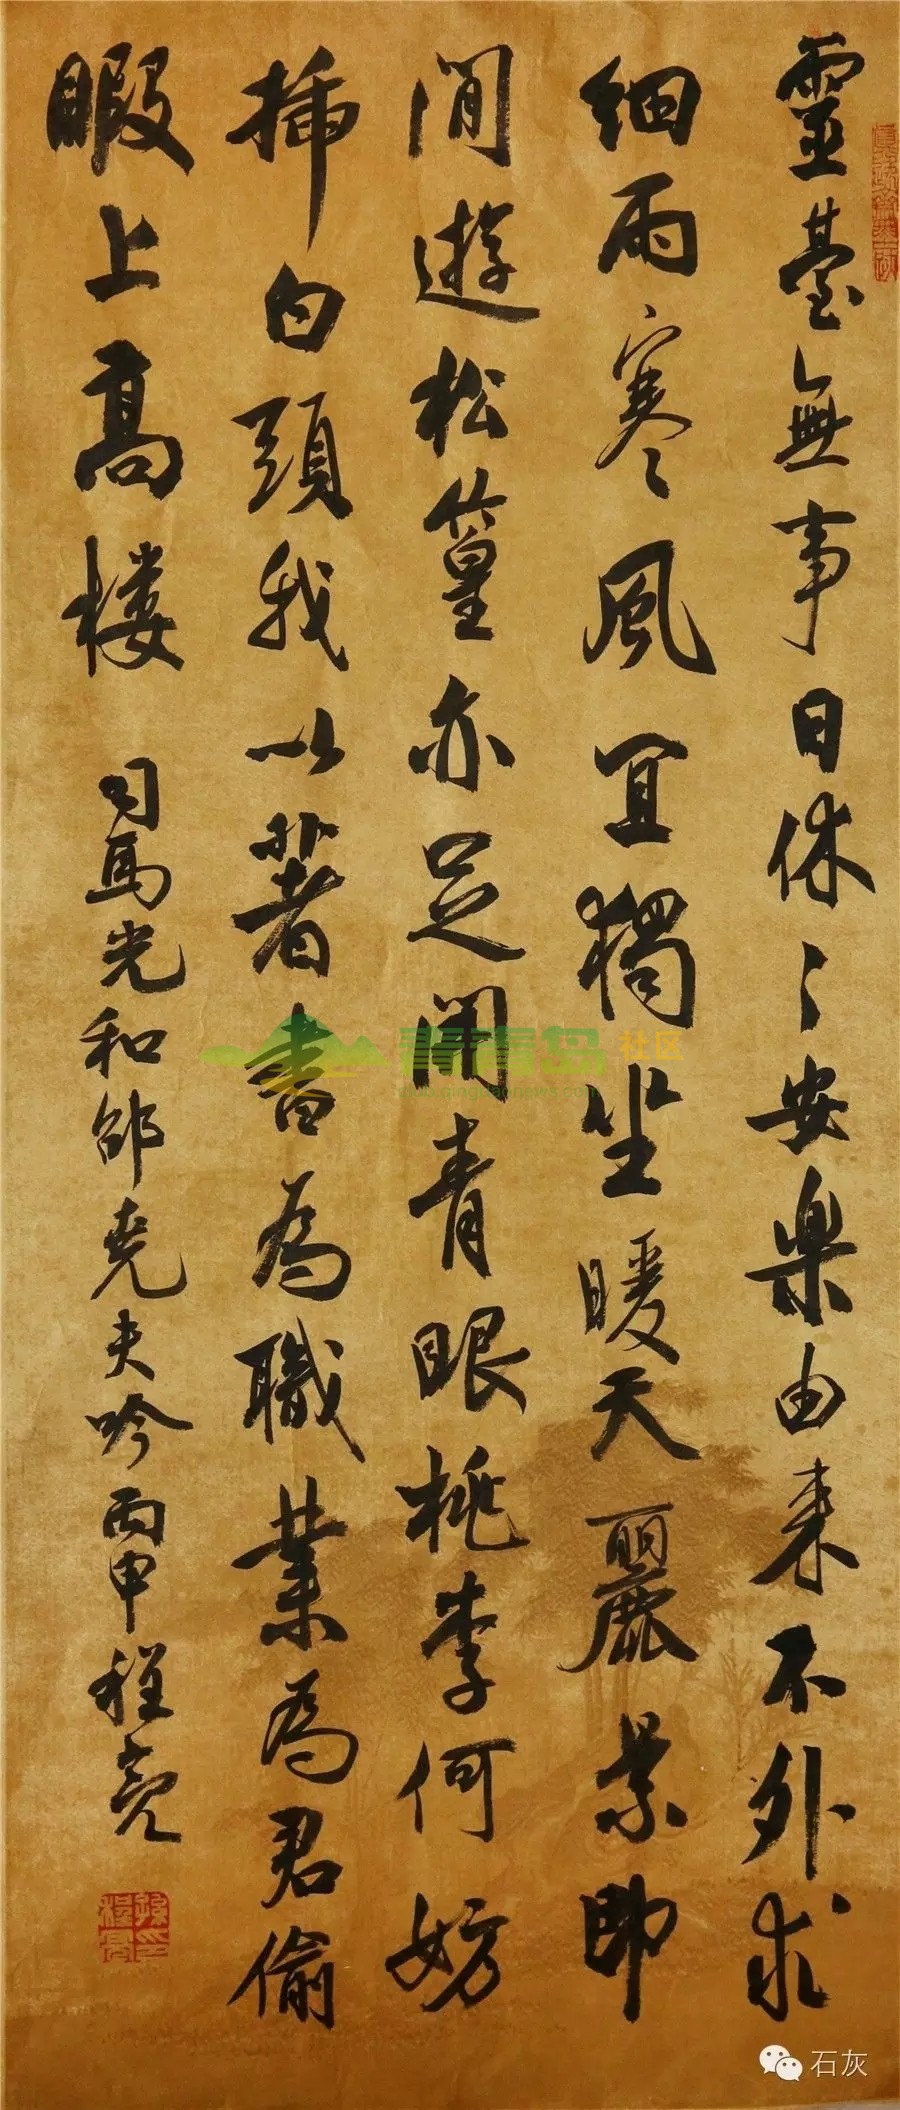 靈臺無事日休〻安樂由来不外求
细雨寒〻風宜獨坐暖天麗景即
閒遊松篁亦足開青眼桃李何妨
插白頭我以著書為職業為君偷
暇上高楼
司馬光和邵堯夫吟丙申程亮
青青岛社区
石灰